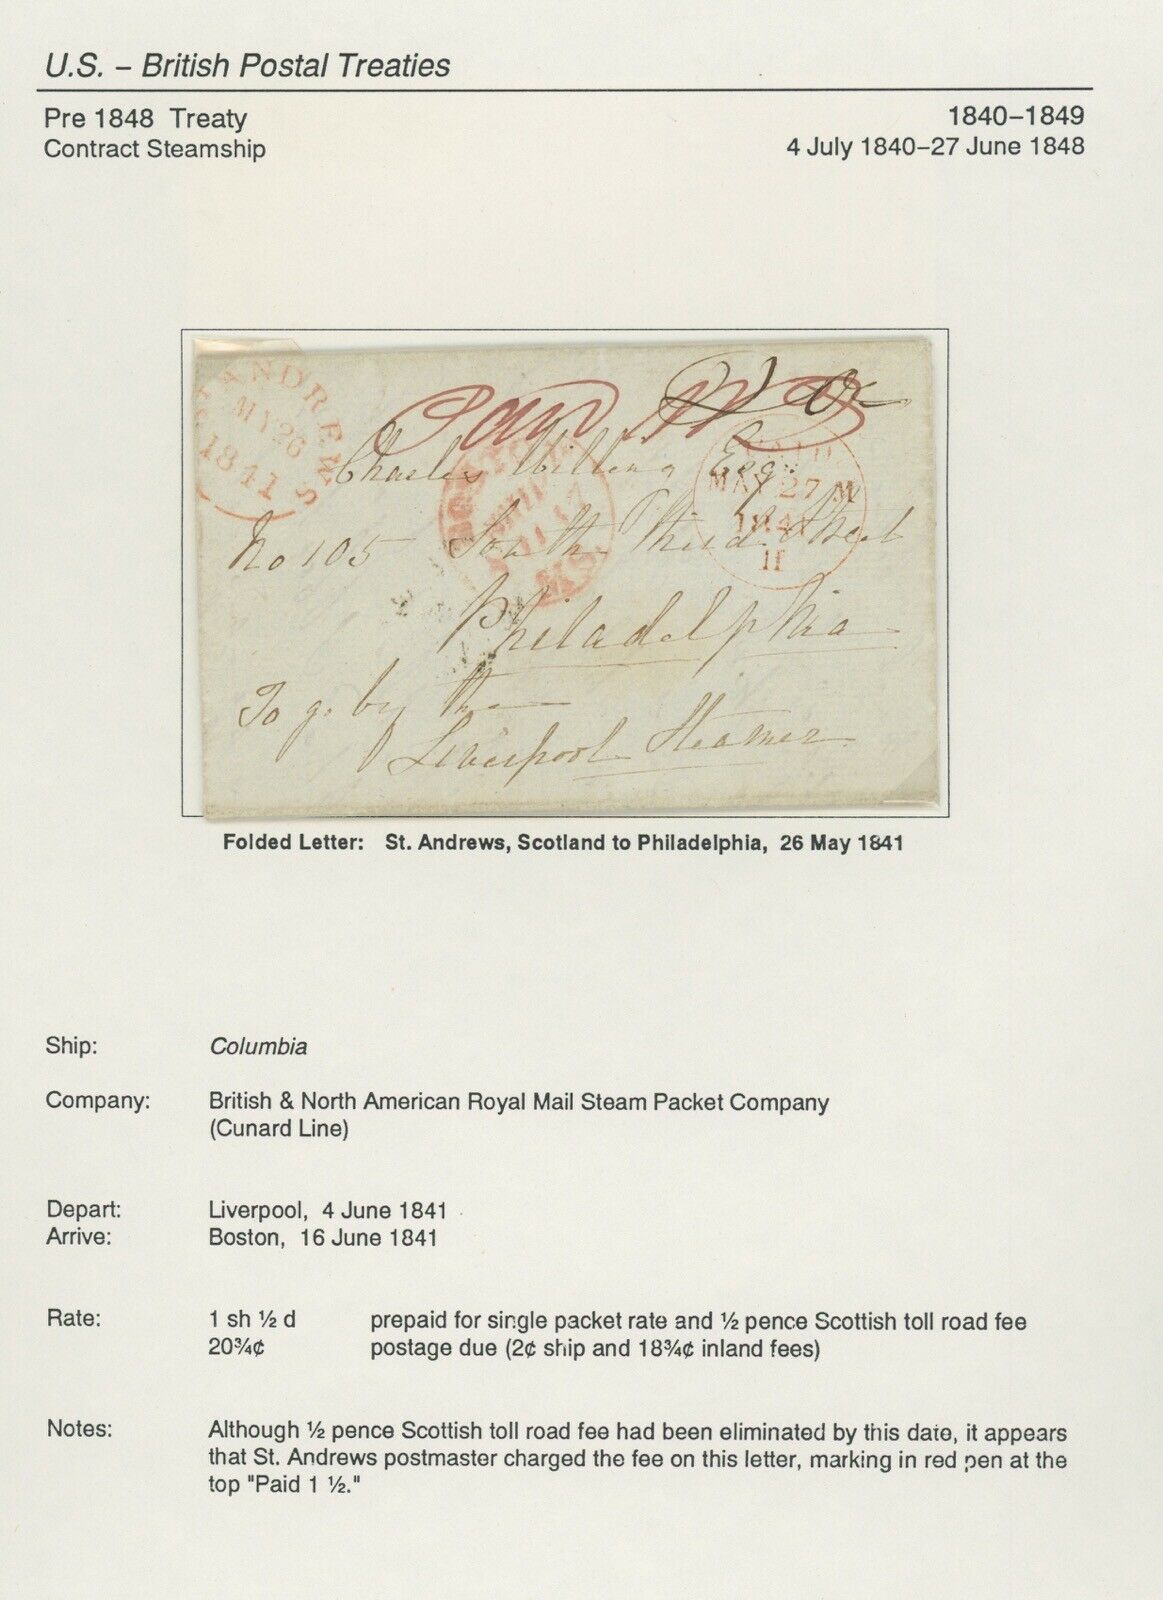 U.S. – British Postal Treaties
Pre 1848 Treaty
1840–1849
Contract Steamship
4 July 1840–27 June 1848
ANDREWS
MY 26
1841
Paid
PAID
MAY 27 M
1841
BOSTON
MS.
Charles Willing Esq.
No 105 South Third Street
Philadelphia
To go by the
Liverpool Steamer
Folded Letter: St. Andrews, Scotland to Philadelphia, 26 May 1841
Ship: Columbia
Company: British & North American Royal Mail Steam Packet Company
(Cunard Line)
Depart: Liverpool, 4 June 1841
Arrive: Boston, 16 June 1841
Rate: 1 sh ½ d prepaid for single packet rate and ½ pence Scottish toll road fee
20¾¢ postage due (2¢ ship and 18¾¢ inland fees)
Notes: Although ½ pence Scottish toll road fee had been eliminated by this date, it appears
that St. Andrews postmaster charged the fee on this letter, marking in red pen at the
top "Paid 1 ½."